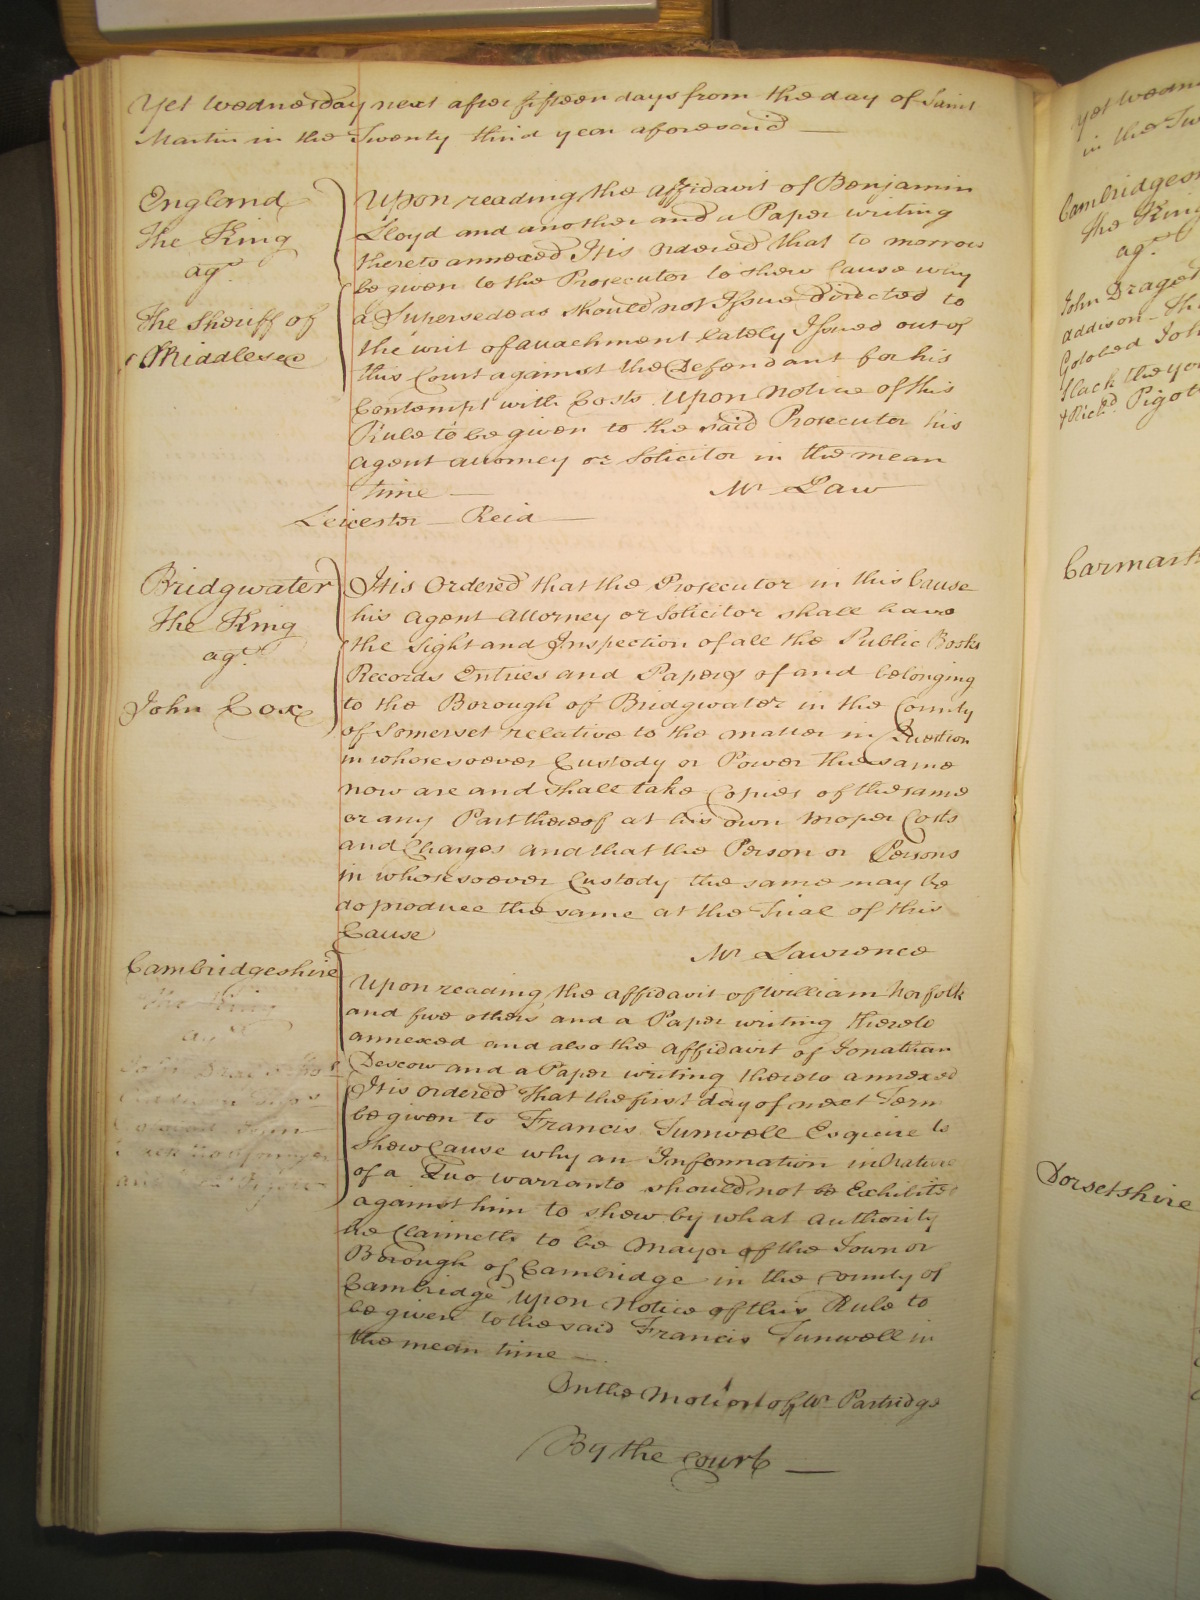 Yet Wednesday next after fifteen days from the day of Saint
Martin in the Twenty third year aforesaid
England
The King
agt.
The Sheriff of
Middlesex
Upon reading the affidavit of Benjamin
Lloyd and another and a Paper writing
thereto annexed It is ordered that to morrow
be given to the Prosecutor to shew Cause why
a Supersedeas should not Issue directed to
the writ of attachment lately Issued out of
this Court against the Defendant for his
Contempt with Costs Upon Notice of this
Rule to be given to the said Prosecutor his
agent attorney or Solicitor in the mean
time Mr Law
Leicester Reid
Bridgwater
The King
agt.
John Cox
It is Ordered that the Prosecutor in this Cause
his agent Attorney or Solicitor shall have
the Sight and Inspection of all the Public Books
Records Entries and Papers of and belonging
to the Borough of Bridgwater in the County
of Somerset relative to the matter in Question
in whosesoever Custody or Power the same
now are and shall take Copies of the same
or any Part thereof at his own proper Costs
and Charges and that the Person or Persons
in whosesoever Custody the same may be
do produce the same at the Trial of this
Cause
Mr Lawrence
Cambridgeshire
The King
agt
Upon reading the affidavit of William Norfolk
and five others and a Paper writing thereto
annexed and also the affidavit of Jonathan
Descow and a Paper writing thereto annexed
It is ordered That the first day of next Term
be given to Francis Tunwell Esquire to
shew Cause why an Information in Nature
of a Quo warranto should not be Exhibited
against him to shew by what authority
he Claimeth to be Mayor of the Town or
Borough of Cambridge in the County of
Cambridge Upon Notice of this Rule to
be given to the said Francis Tunwell in
the mean time
On the Motion of Mr Partridge
By the Court
Yet Wedn
in the Tw
Cambridges
The King
agt.
John Draget
addison
Golobed Joh
Slack the yo
& Richd. Pigot
Carmarth
Dorsetshire